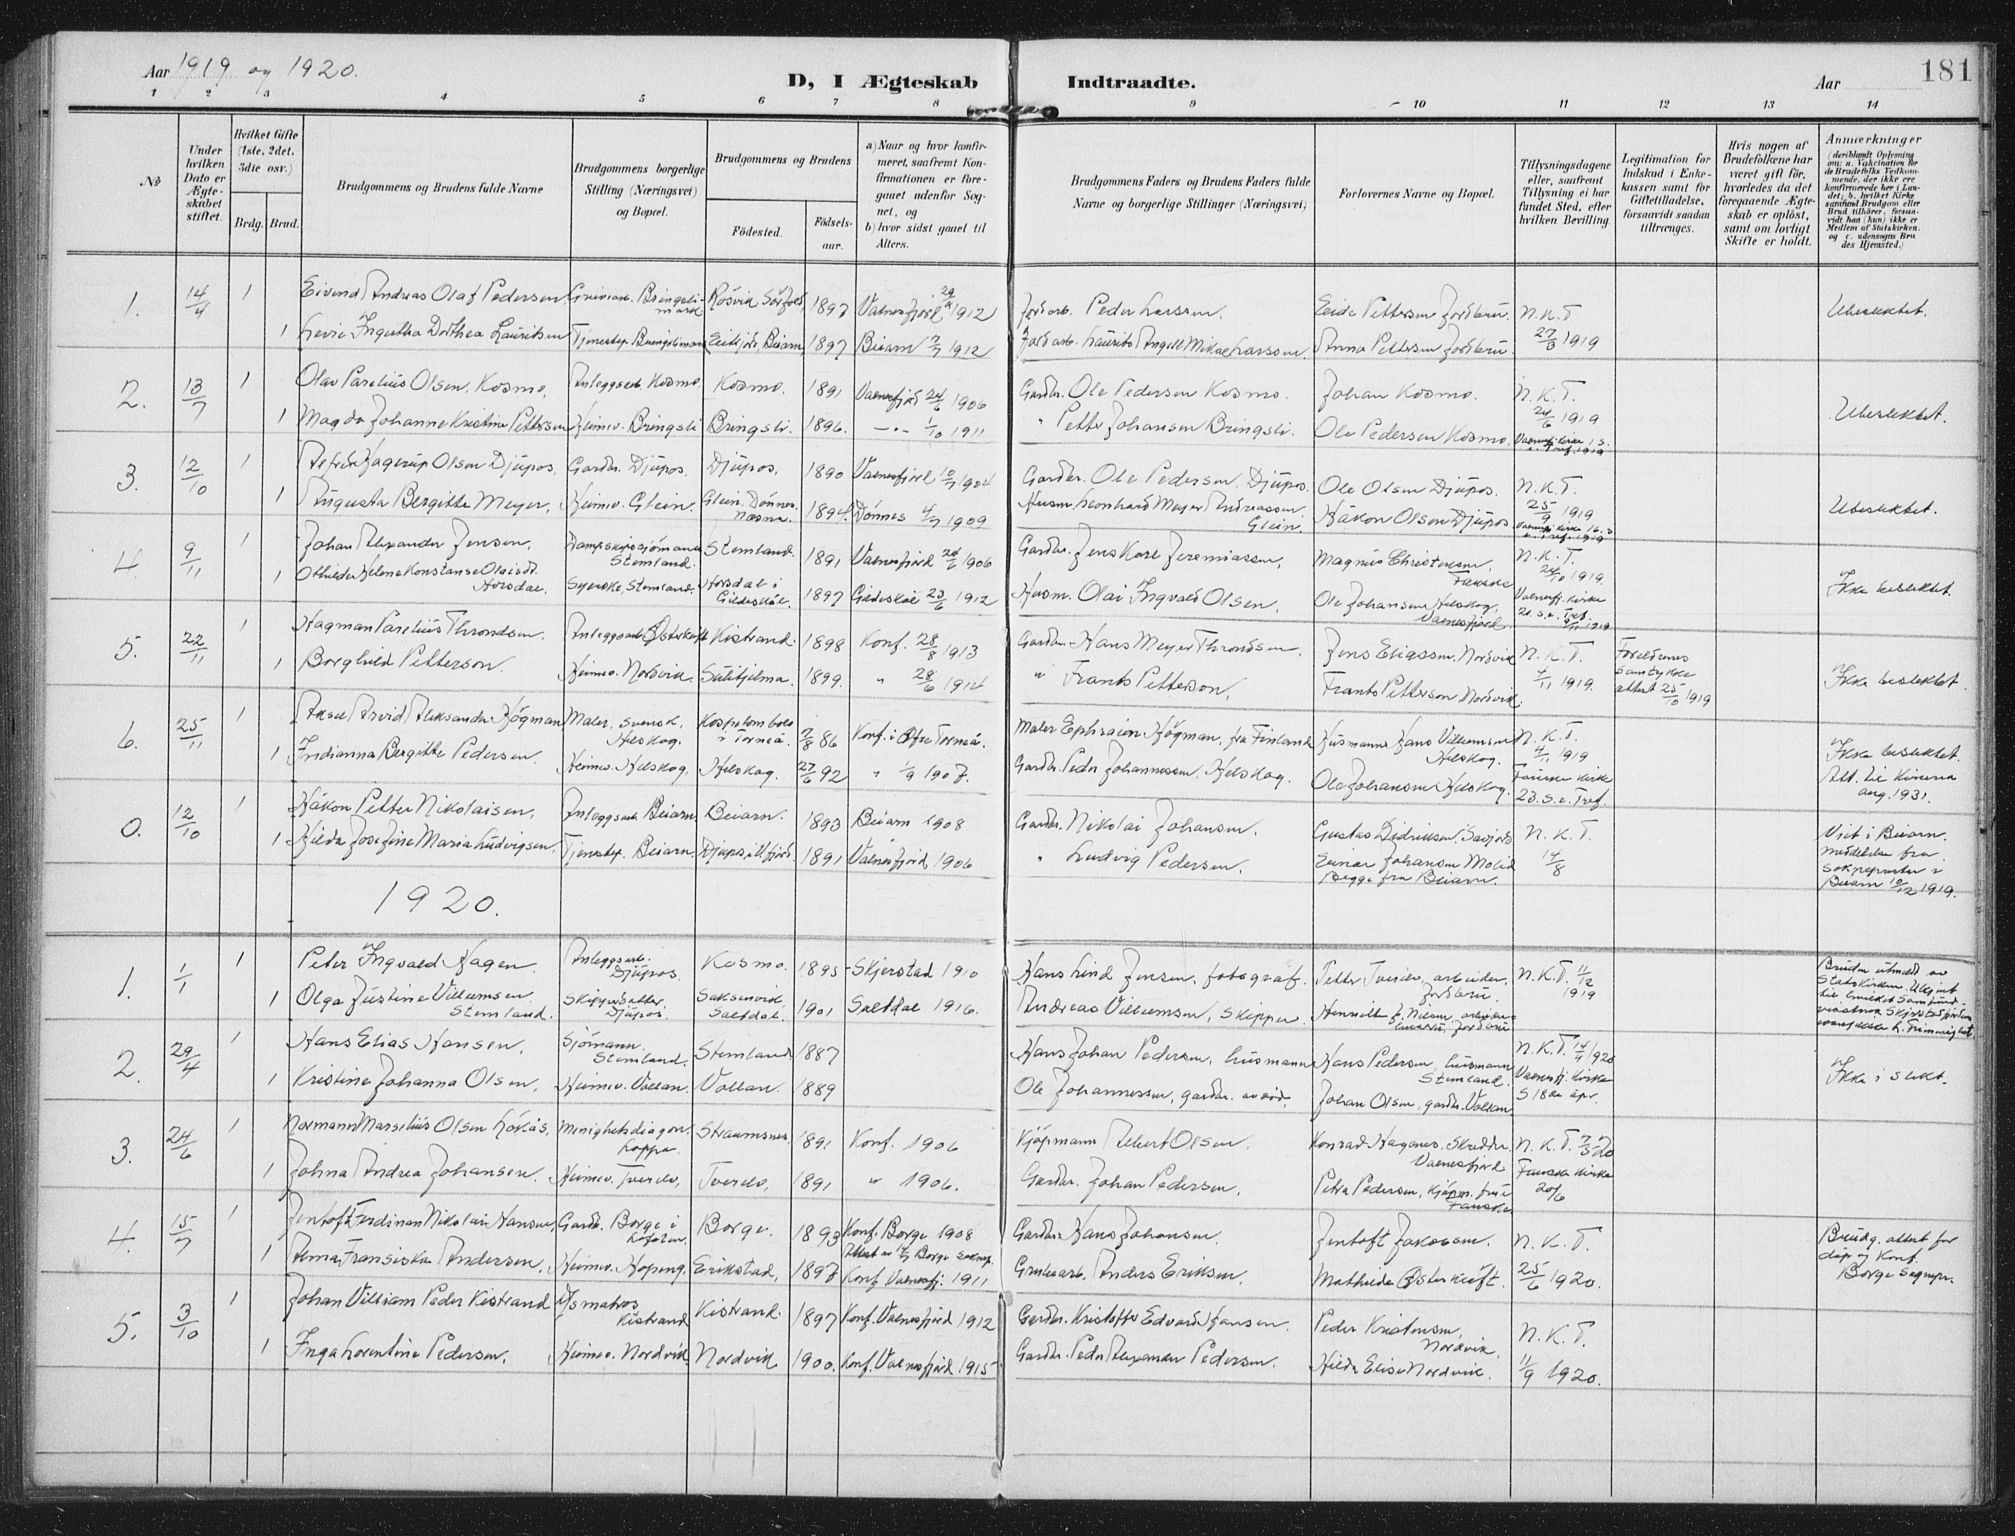 Aar 1919 og 1920.
D, I Ægteskab Indtraadte.
Aar
181
1 2 3 4 5 6 7 8 9 10 11 12 13 14
No
Under hvilken Dato er Ægteskabet stiftet.
Hvilket Gifte (1ste, 2det, 3die osv.)
Brdg. Brud.
Brudgommens og Brudens fulde Navne
Brudgommens borgerlige Stilling (Næringsvei) og Bopæl.
Brudgommens og Brudens
Födested. Födselsaar.
a) Naar og hvor konfirmeret, saafremt Konfirmationen er foregaaet udenfor Sognet, og
b) hvor sidst gaaet til Alters.
Brudgommens Faders og Brudens Faders fulde Navne og borgerlige Stillinger (Næringsvei)
Forlovernes Navne og Bopæl.
Tillysningsdagene eller, saafremt Tillysning ei har fundet Sted, efter hvilken Bevilling
Legitimation for Indskud i Enkekassen samt for Giftetilladelse, forsaavidt saadan tiltrænges.
Hvis nogen af Brudefolkene har været gift för, hvorledes da det foregaaende Ægteskab er oplöst, samt om lovligt Skifte er holdt.
Anmærkninger
(deriblandt Oplysning om: a. Vakcination for de Brudefolks Vedkommende, der ikke ere konfirmerede her i Landet; b. hvilket Kirkesamfund Brudgom eller Brud tilhörer, forsaavidt han (hun) ikke er Medlem af Statskirken, og c. udensogns Brudes Hjemsted.)
1. 14/4 1 Eivind Andreas Olaf Pedersen Bringslimark Rösvik Sörfold, 1897 Valnesfjord 1912 Peder Larssen. Eide Pettersen N.K.T Ubeslektet.
1 Ingertha Dorthea Lauritsen Tjenestep. Bringslimark Beiarn, 1897 Beiarn 7/7 1912 Laurits Angell Mikael Larssen Anna Pettersen 27/3 1919
2. 13/7 1 Olav Parelius Olsen, Kosmo, Anleggsarb. Kosmo, Kosmo. 1891 Valnesfjord 24/6 1906 Gardbr. Ole Pedersen Kosmo. Johan Kosmo. N.K.T.
1 Magda Johanne Kristine Pettersen Heimev. Bringsli Bringsli. 1896. 1/10 1911 " Petter Johansen Bringsli. Ole Pedersen Kosmo. 24/6 1919 Ubeslektet.
3. 12/10 1 Hagerup Olsen Djupos, Gardbr. Djupos. Djupos, 1890 Valnesfjord 10/7 1904 Gardbr. Ole Pedersen Djupos. Ole Olsen Djupos. N.K.T.
1 Augusta Bergitte Meyer, Heimev. Glein. Glein, Dönnes. 1894. Dönnes 4/7 1909 Husm. Leonhard Meyer Andreassen Glein. Håkon Olsen Djupos 25/9 1919 Ubeslektet.
4. 9/11 1 Johan Alexander Jensen, Dampskipssjömann Stemland. Stemland. 1891 Valnesfjord 24/6 1906 Gardbr. Jens Karl Jeremiassen, Magnus Christensen, Fauske N.K.T. 24/10 1919.
1 Helene Konstanse Olaisdt. Horsdal, Syerske, Stemland. Horsdal i Gildeskål. 1897 Gildeskål 23/6 1912 Husm. Olai Ingvald Olsen. Ole Johansen Helskog, Valnesfjord. Ikke beslektet.
5. 22/11 1 Hagman Parelius Throndsen. Anleggsarb. Österkløft Kistrand. 1898 Konf. 28/8 1913 Gardbr. Hans Meyer Throndsen, Jens Eliassen, Nordvik N.K.T. Foreldrenes samtykke attest 25/10 1919
1 Borghild Petterson. Heimev. Nordvik. Sulitjelma. 1899. " 28/6 1914 " Frants Petterson, Frants Petterson Nordvik. 1919. Ikke beslektet.
6. 25/11 1 Aksel Arvid Aleksander Högman Maler, svensk, Helskog. i Torneå. 7/8 86 Konf. i Öfre Torneå. Maler Ephraim Högman, fra Finland Husmann Hans Villumsen Helskog. N.K.T. 4/11 1919 Ikke beslektet.
1 Indianna Bergitte Pedersen. Heimev. Helskog. Helskog. 27/6 92 " 1/9 1907. Gardbr. Peder Johannessen, Helskog. Ole Johansen Helskog. Fauske Kirke 23. s.e. Tref. Att. til Kiruna aug. 1931.
0. 12/10 1 Håkon Petter Nikolaisen, Anleggsarb. Beiarn. Beiarn. 1893 Beiarn 1908 Gardbr. Nikolai Johansen. Gustav Didriksen, N.K.T. Viet i Beiarn.
1 Hilda Josefine Maria Ludvigsen, Tjenestep. Beiarn. Djupos, 1891 Valnesfjord 1906 " Ludvig Pedersen. Einar Johansen Begge fra Beiarn. 14/8 meddelelse fra soknepresten i Beiarn 10/12 1919.
1920.
1. 1/1 1 Peter Ingvald Hagen. Anleggsarb. Djupos. Kosmo. 1895 Skjerstad 1910 Hans Lind Jensen, fotograf. Petter Tverelv, arbeider, N.K.T. 11/12 1919 Bruden utmeldt av Statskirken.
1 Olga Justine Villumsen Stemland. Skipperdatter Djupos. Saksenvik, Saltdal. 1901 Saltdal 1916. Andreas Villumsen, Skipper.
2. 29/4 1 Hans Elias Hansen, Sjömann, Stemland. Stemland 1887 Hans Johan Pedersen, husmann Hans Pedersen, husmann Stemland. N.K.T. 14/4 1920
1 Kristine Johanna Olsen, Heimev. Vollan. Vollan. 1889 Ole Johannessen, gardbr. Johan Olsen, gardbr. Vollan Valnesfj. Kirke S 18de apr. Ikke i slekt.
3. 24/6 1 Normann Marselius Olsen Lökås, Menighetsdiagon. Loppa. Straumsnes, 1891 Konf. 1906 Kjöpmann Albert Olsen. Konrad Haganes, Skredder Valnesfjord N.K.T.
1 Johna Andrea Johansen. Heimev. Tverelv, Tverelv, 1891 " 1906. Gardbr. Johan Pedersen. Petra Pedersen, Kjöpm. frue Fauske Fauske Kirke 20/6
4. 15/7 1 Jentoft Ferdinan Nikolai Hansen, Gardb. Borge i Lofoten. Borge. 1893 Konf. Borge 1908 Gardbr. Hans Johansen. Jentoft Jakobsen. N.K.T. Brudg. attest for dåp og Konf. Borge Sognepr.
1 Anna Fransiska Andersen. Heimev. Köping. Erikstad, 1897 Konf. Valnesfj. 1911 Grubearb. Anders Eriksen. Mathilde Österkløft. 25/6 1920.
5. 3/10 1 Johan Villiam Peder Kistrand Kistrand Kistrand. 1897 Konf. Valnesfjord 1912 Gardbr. Kristoffer Edvard Hansen. Peder Kristensen, Nordvik. N.K.T.
1 Inga Lorentine Pedersen. Heimev. Nordvik Nordvik 1900. Konf. Valnesfjord 1915 Gardbr. Peder Pedersen. Hilda Elise Nordvik. 11/9 1920.